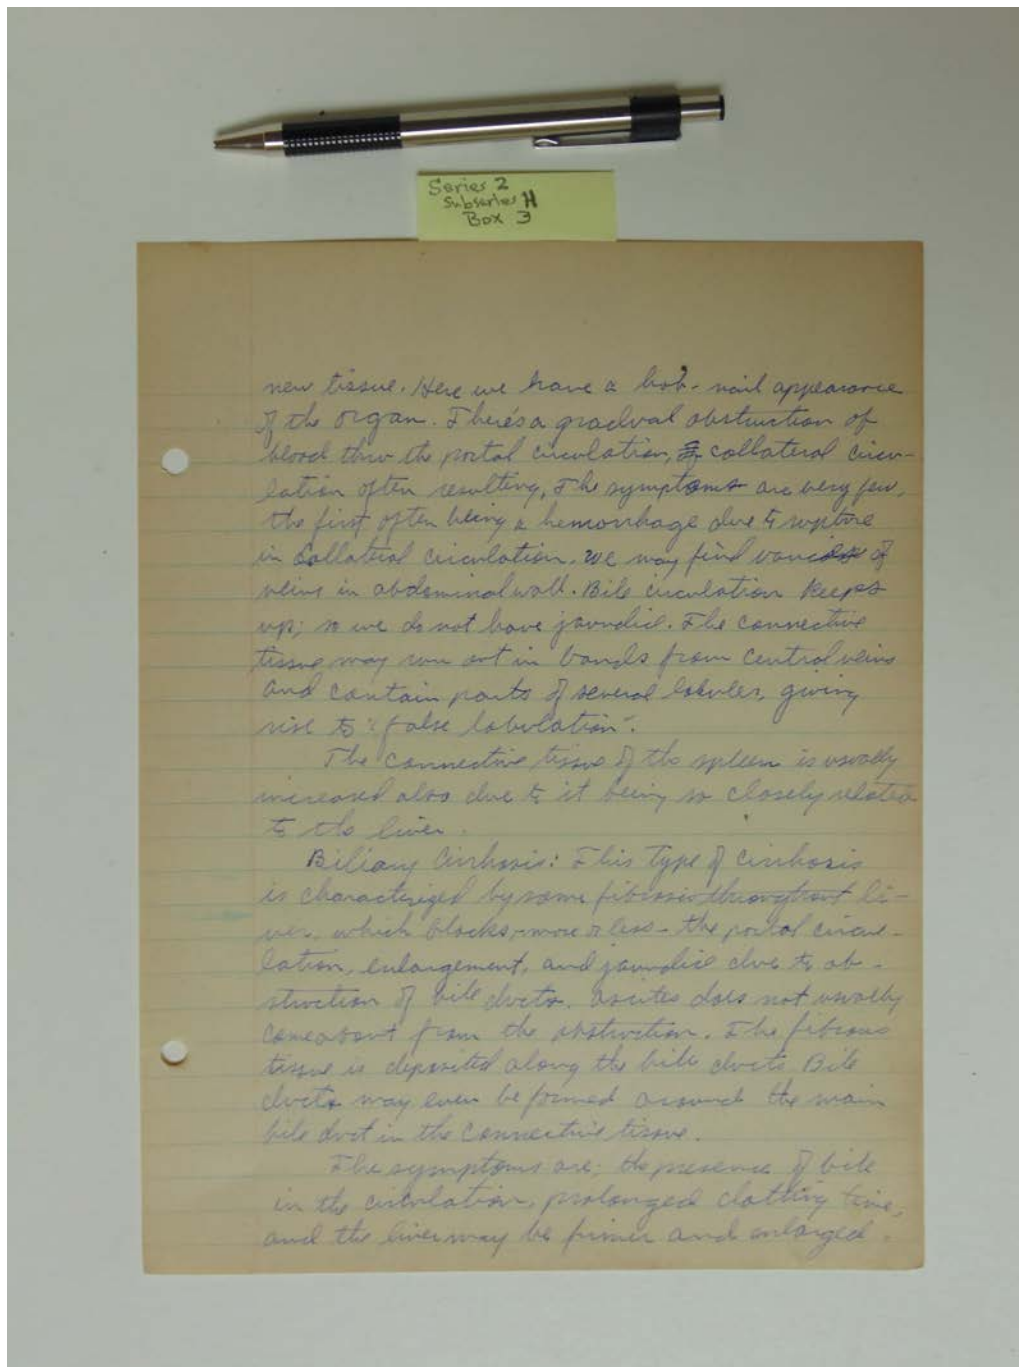 Series 2
Subseries H
Box 3
new tissue. Here we have a hob-nail appearance
of the organ. There's a gradual obstruction of
blood thru the portal circulation, collateral circu-
lation often resulting, The symptoms are very few,
the first often being a hemorrhage due to rupture
in collateral circulation. We may find of
veins in abdominal wall. Bile circulation keeps
up; so we do not have jaundice. The connective
tissue may run out in bands from central veins
and contain parts of several lobules, giving
rise to "false lobulation".
The connective tissue of the spleen is usually
increased also due to it being so closely related
to the liver.
Biliary Cirrhosis: This type of cirrhosis
is characterized by some fibrosis throughout li-
ver, which blocks-more or less-the portal circu-
lation, enlargement, and jaundice due to ob-
struction of bile ducts. Ascites does not usually
come about from the obstruction. The fibrous
tissue is deposited along the bile ducts. Bile
ducts may even be formed around the main
bile duct in the connective tissue.
The symptoms are; the presence of bile
in the circulation, prolonged clotting time,
and the liver may be firmer and enlarged.